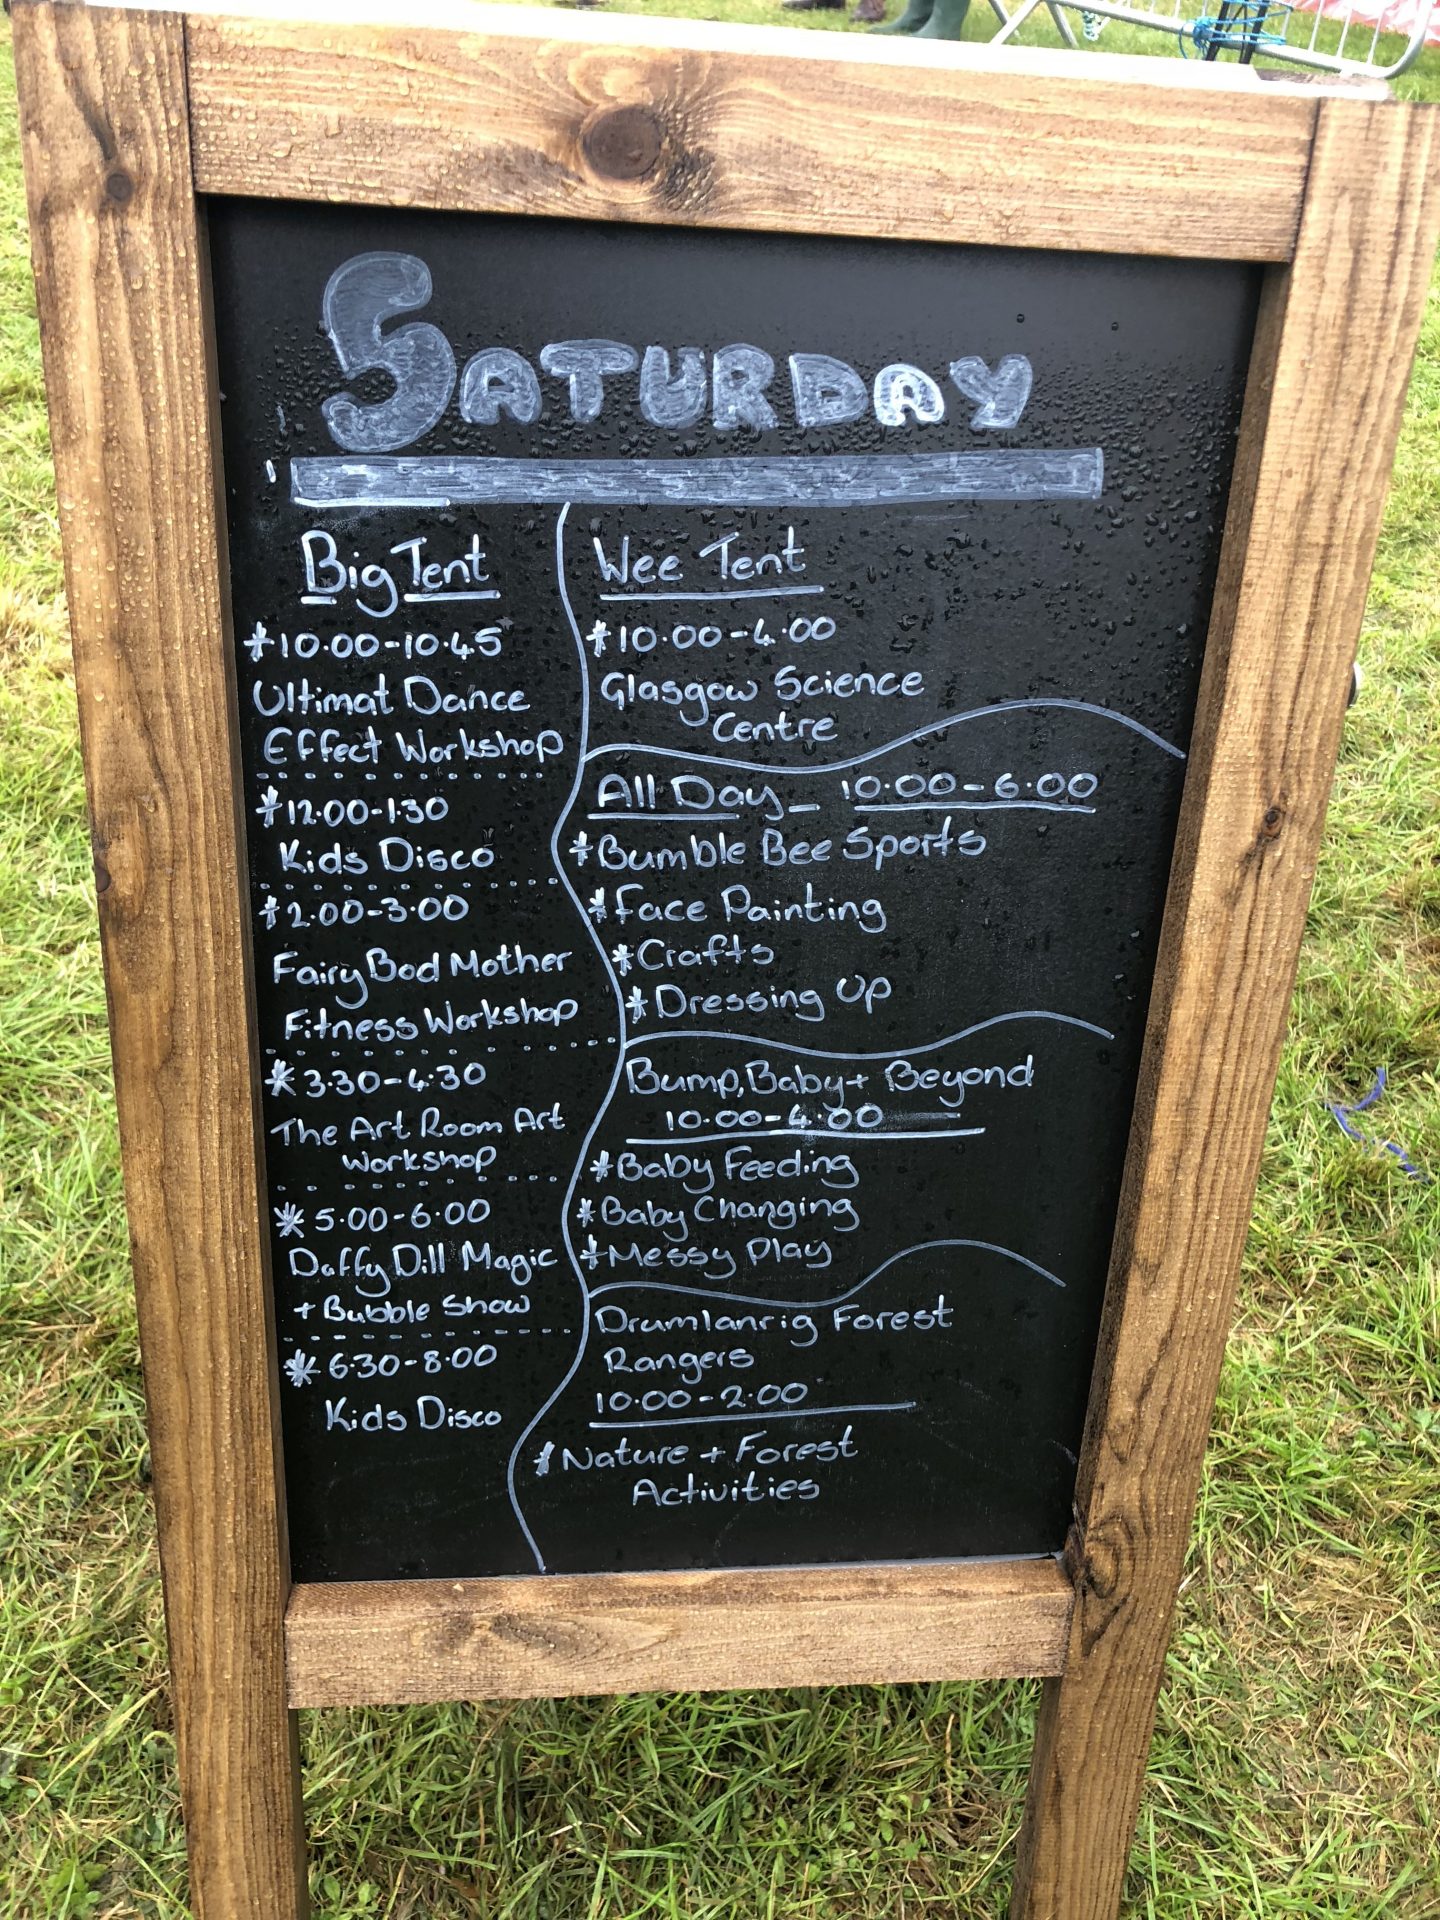 SATURDAY
Big Tent
*10.00-10.45
Ultimat Dance
Effect Workshop
*12.00-1.30
Kids Disco
*2.00-3.00
Fairy Bod Mother
Fitness Workshop
*3.30-4.30
The Art Room Art
Workshop
*5.00-6.00
Daffy Dill Magic
+ Bubble Show
*6.30-8.00
Kids Disco
Wee Tent
*10.00-4.00
Glasgow Science
Centre
All Day - 10.00-6.00
*Bumble Bee Sports
*Face Painting
*Crafts
*Dressing Up
Bump, Baby + Beyond
10.00-4.00
*Baby Feeding
*Baby Changing
*Messy Play
Drumlanrig Forest
Rangers
10.00-2.00
*Nature + Forest
Activities